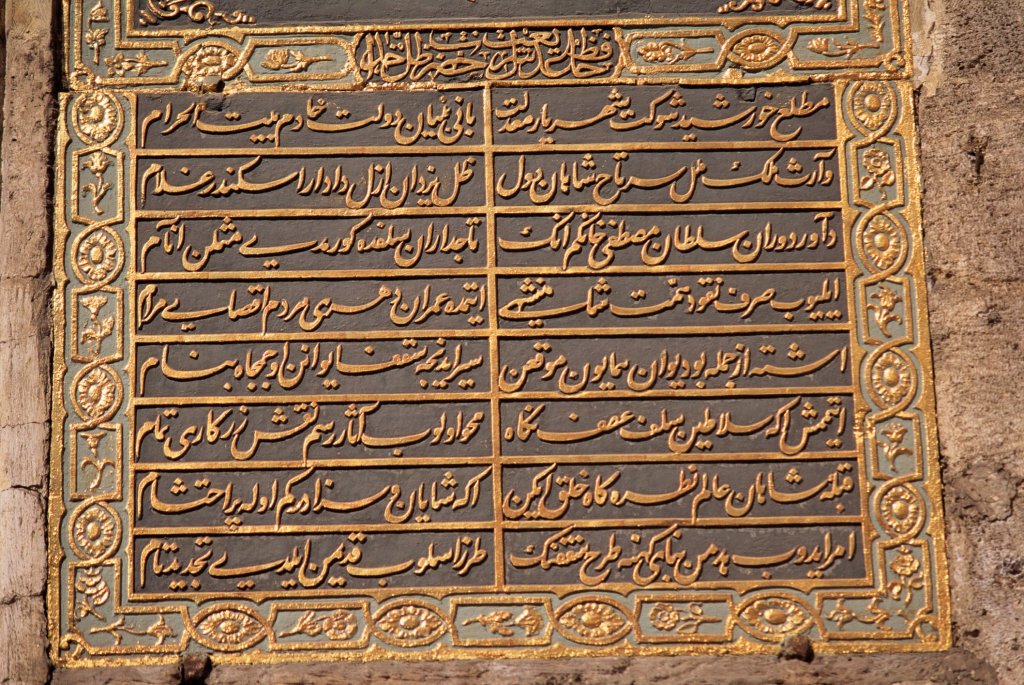 مطلع خورشید شوکت شهریار معدلت بانی بنیان دولت خادم بیت الحرام
وارث ملک ملل سرتاج شاهان دول ظل یزدان ازل دادار اسکندر غلام
داور دوران سلطان مصطفی خانکم انک تاجداران سلفده کورمدی مثلن انام
ایلیوب صرف نقود همت شاهنشهی ایتمده عمران دهری هردم اقصای مرام
اشته از جمله بو دیوان همایون موقعن سیر ایدنجه سقف ایوانن او جمجاه بنام
ایتمش اکه سلاطین سلف عطف نکاه محو اولوب آثار رسم نقش زرکاری تمام
قبله شاهان عالم نظره کاه خلق ایکن اکه شایان و سزادرکم اوله پر احتشام
امر ایدوب بنای کهنه طرح سقفنک طرز اسلوب قدیمن ایلدی تجدید تام